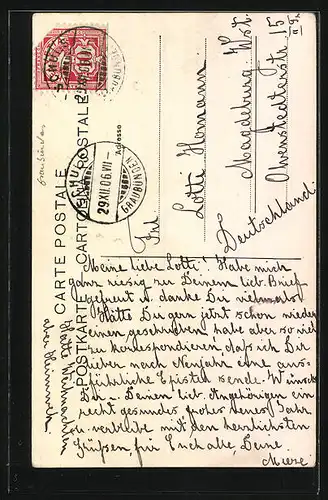 CARTE POSTALE
POSTKARTE CARTOLINA POSTALE
Graubünden
CHUR
29.XII.06.VII
GRAUBÜNDEN
10
Adresse
Frl.
Lotti Homann
Magdeburg Wst.
Olvenstedterstr. 15
Deutschland.
Meine liebe Lotti! Habe mich
ganz riesig zu Deinem lieb. Brief
gefreut u. danke Dir vielmals
Hätte Dir gern jetzt schon wieder
einen geschrieben, habe aber so viel
zu korrespondieren, daß ich Dir
lieber nach Neujahr eine aus-
führliche Epistel sende. Wünsche
Dir u. Deinen lieb. Angehörigen ein
recht gesundes, frohes neues Jahr
u. verbleibe mit den herzlichsten
Grüßen für Euch alle, Deine
Mieze
Weihnachten
aber Heimweh.